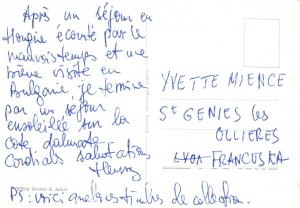 Après un séjour en
Hongrie écourté par le
mauvais temps et une
brève visite en
Bulgarie, je termine
par un séjour
ensoleillé sur la
côte dalmate
Cordiales salutations
YVETTE MIENCE
St GENIES les
OLLIERES
LYON FRANCUSKA
PS: voici quelques timbres de collection.